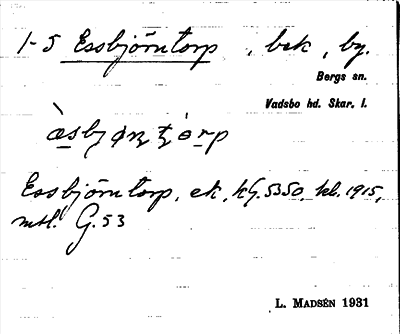 1-5 Essbjörntorp, bek, by.
Bergs sn.
Vadsbo hd. Skar. l.
Essbjörntorp, ek, hG.5350, kl. 1915,
mtl. G.53
L. MADSÉN 1931